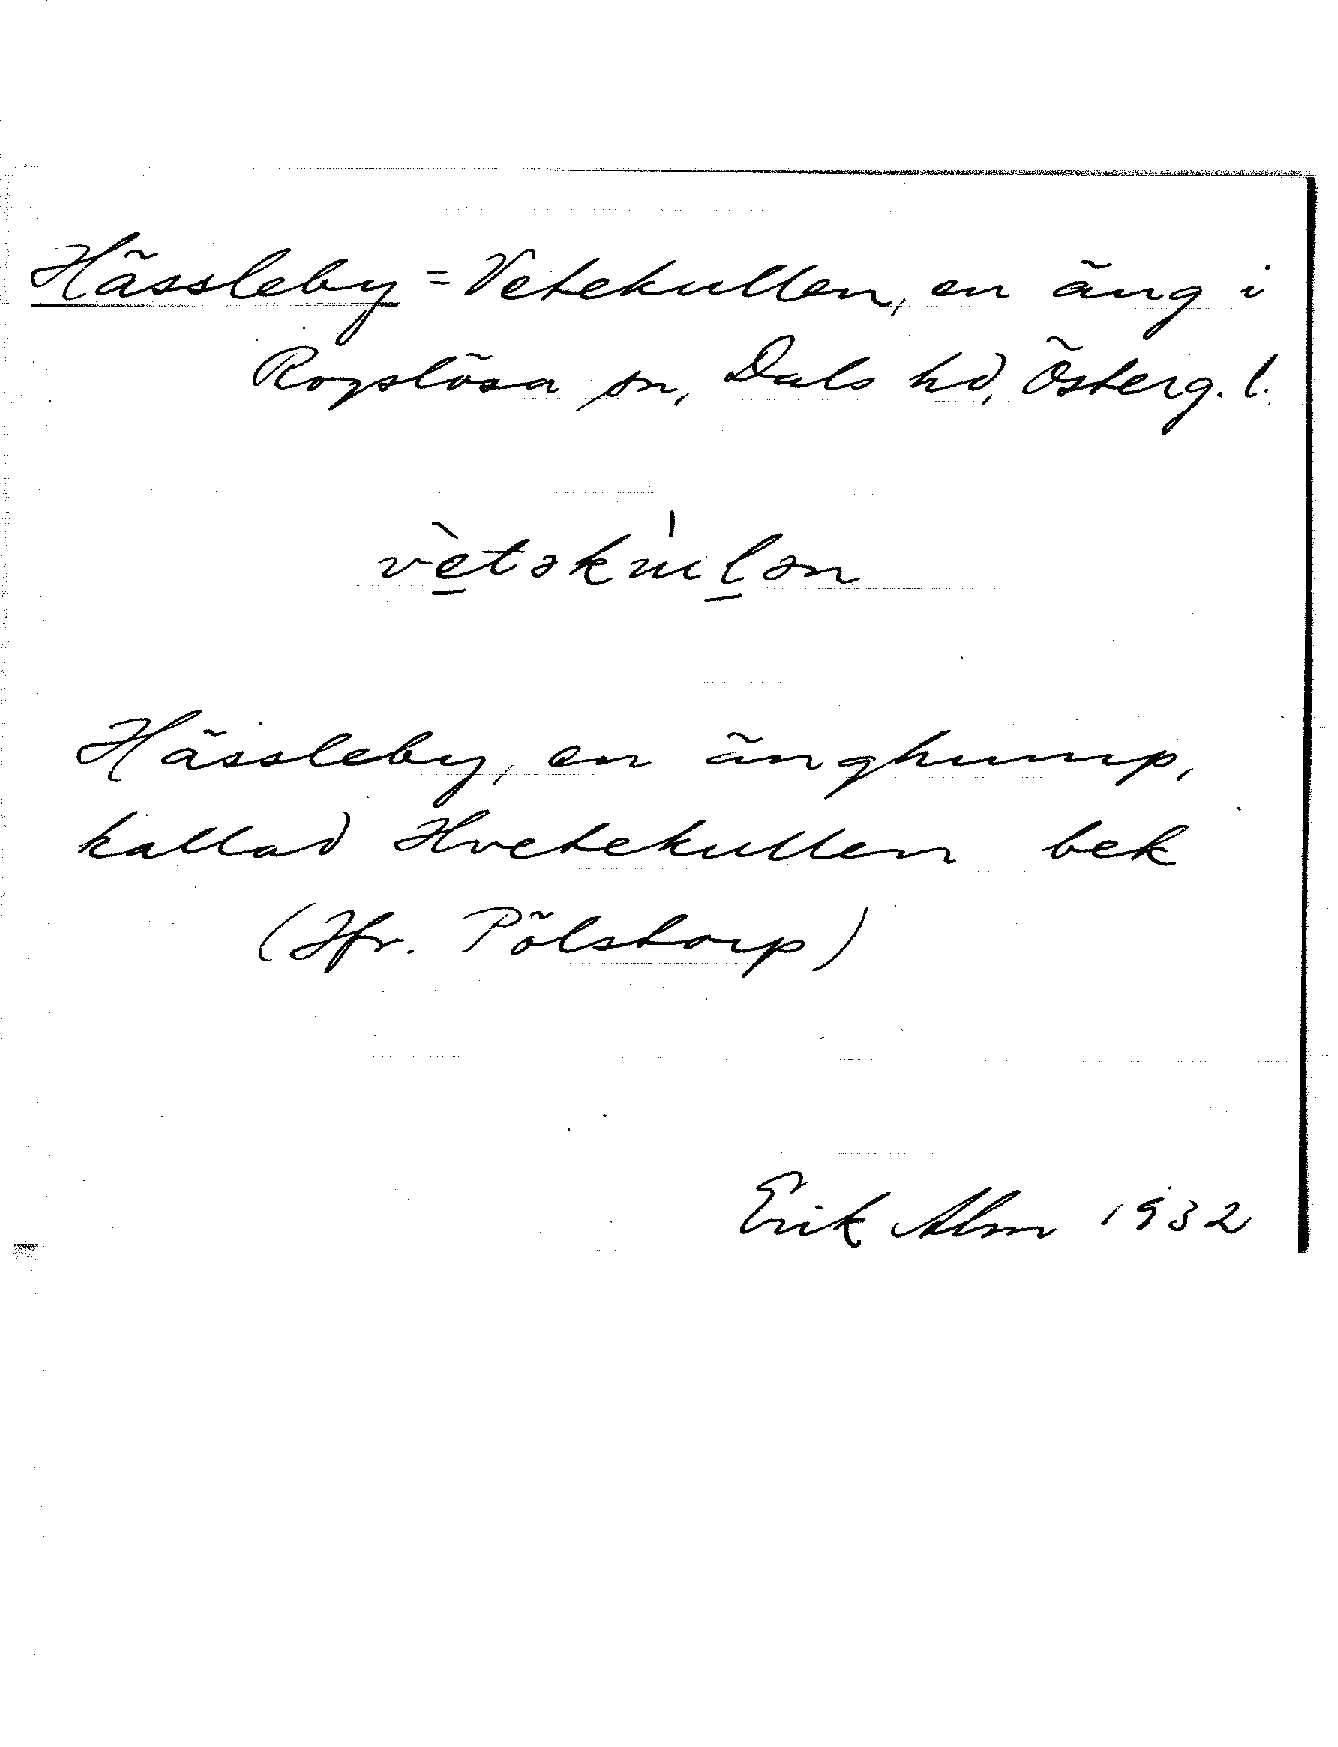 Hässleby = Vetekullen, en äng i
Rogslösa sn, Dals hd, Österg. l.
vètəkùl̲ən
Hässleby, en änghump,
kallad Hvetekullen bek
(Jfr. Pölstorp)
Erik Alm 1932